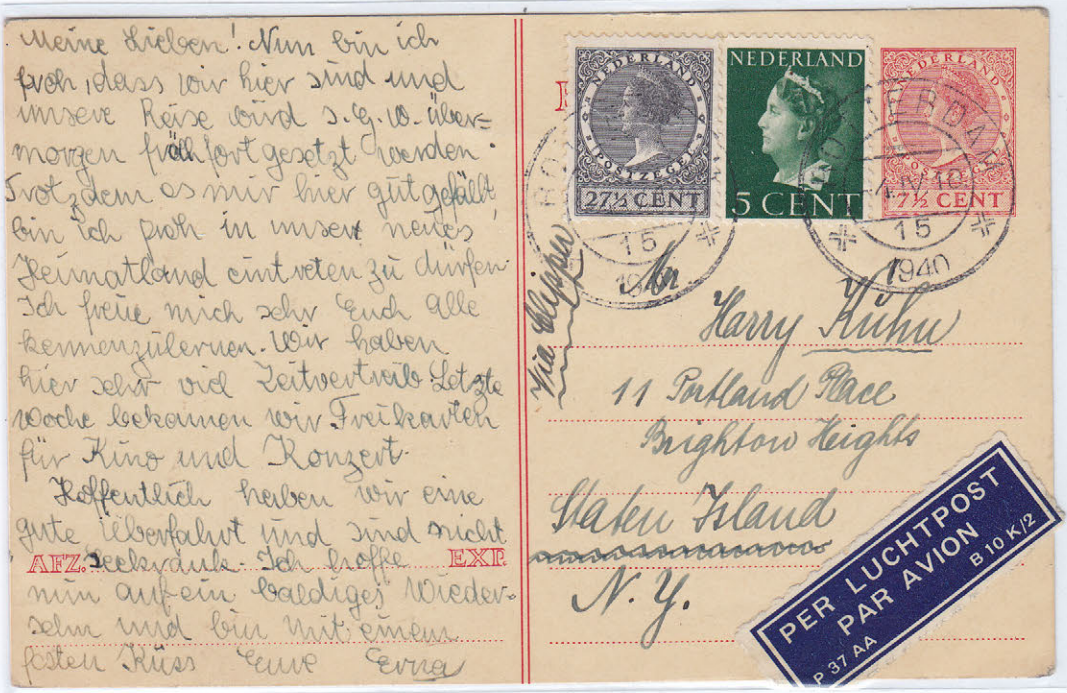 Meine Lieben! Nun bin ich
froh, dass wir hier sind und
unsere Reise wird s. G. w. über=
morgen früh fortgesetzt werden.
Trotzdem es mir hier gut gefällt,
bin ich froh in unser neues
Heimatland eintreten zu dürfen.
Ich freue mich sehr Euch Alle
kennenzulernen. Wir haben
hier sehr viel Zeitvertreib. Letzte
Woche bekamen wir Freikarten
für Kino und Konzert.
Hoffentlich haben wir eine
gute Überfahrt und sind nicht
Seekrank. Ich hoffe
nun auf ein baldiges Wieder-
sehn und bin mit einem
festen Küss Eure Erna
AFZ.
EXP.
NEDERLAND
POSTZEGEL
27½ CENT
NEDERLAND
5 CENT
NEDERLAND
7½ CENT
ROTTERDAM
15
1940
ROTTERDAM
IV
15
1940
Via Clipper
Mr
Harry Kuhn
11 Portland Place
Brighton Heights
Staten Island
N. Y.
PER LUCHTPOST
PAR AVION
P 37 AA
B 10 K/2